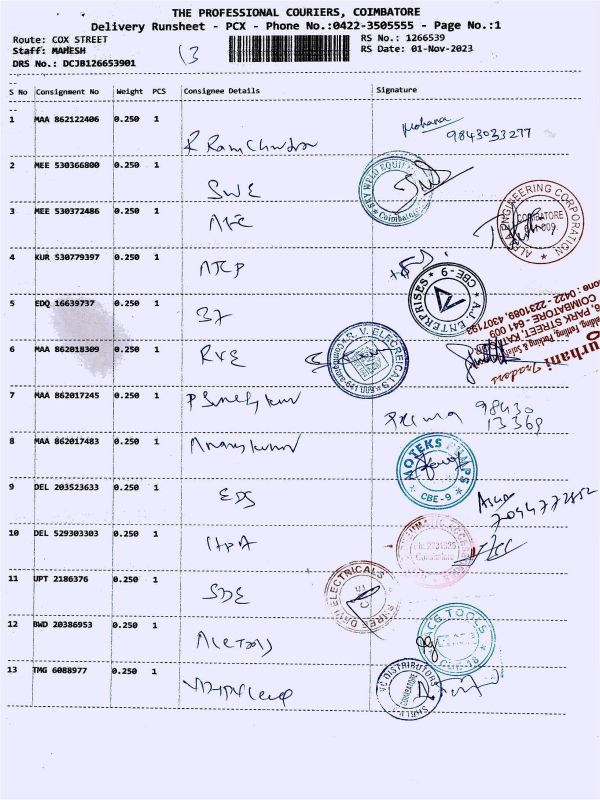 THE PROFESSIONAL COURIERS, COIMBATORE
Delivery Runsheet - PCX - Phone No.:0422-3505555 - Page No.:1
Route: COX STREET
RS No.: 1266539
Staff: MAHESH
13
RS Date: 01-Nov-2023
DRS No.: DCJB126653901
S No Consignment No Weight PCS Consignee Details Signature
1 MAA 862122406 0.250 1
Mohana
9843033277
R Ramchandra
2 MEE 530366800 0.250 1
SWE
SKY WELD EQUIP
Coimbatore
3 MEE 530372486 0.250 1
AEC
ALPHA ENGINEERING CORPORATION
COIMBATORE
641 009
4 KUR 530779397 0.250 1
AJEP
A.J. ENTERPRISES
CBE-9
5 EDQ 16639737 0.250 1
BT
6, PARK STREET,
COIMBATORE - 641 009
Phone : 0422- 2231089, 4307192
Burhani Traders
6 MAA 862018309 0.250 1
RVE
R. V. ELECRICALS
7 MAA 862017245 0.250 1
98430
13369
8 MAA 862017483 0.250 1
NOTEKS PUMPS
CBE-9
9 DEL 203523633 0.250 1
EDS
10 DEL 529303303 0.250 1
11 UPT 2186376 0.250 1
SDE
SHREE DEVI ELECTRICALS
12 BWD 20386953 0.250 1
Ace Tools
ACE TOOLS
CBE-18
13 TMG 6088977 0.250 1
VC DISTRIBUTORS
COIMBATORE